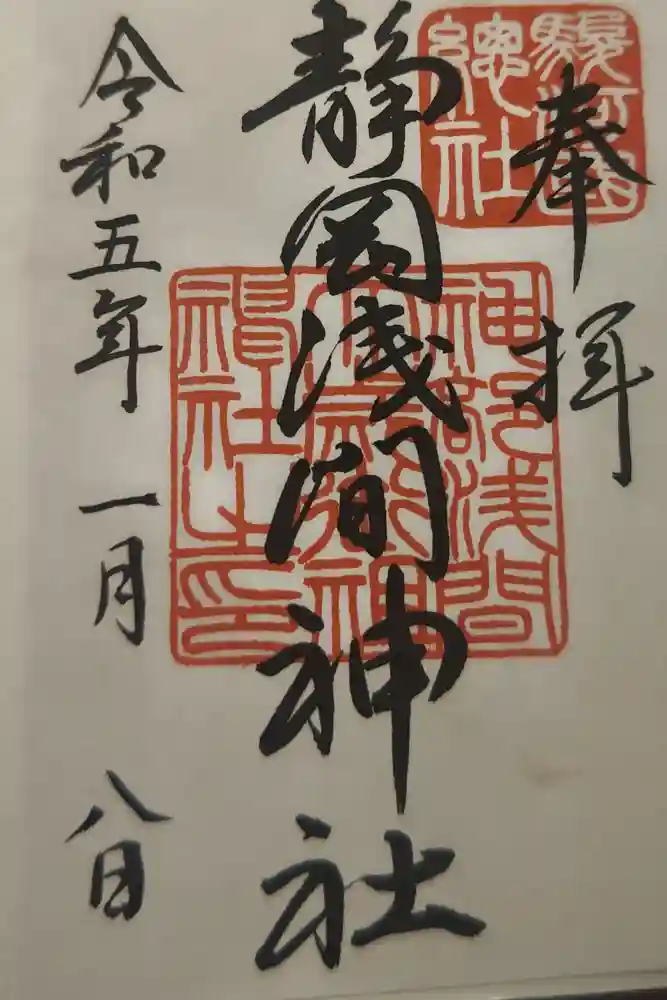 奉拝
駿河国
總社
静岡浅間神社
神部浅間
令和五年一月八日